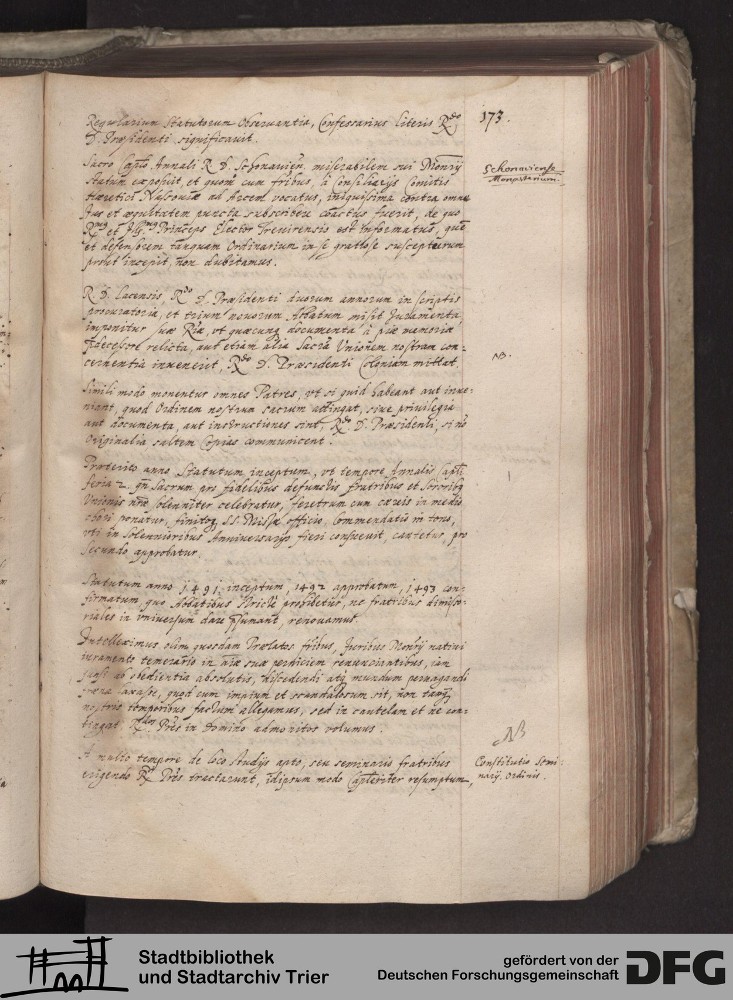 173.
Regularium Statutorum Observantia, Confessarius literis Rdo
D. Præsidenti significavit.
Schonaviense
Monasterium.
Sacro Caplo Annali R. D. Schonavien. miserabilem sui Monrij
statum exposuit, et quom cum fribus, à Consiliarijs Comitis
hæretici Nassoviæ ad Arcem vocatus, iniquissima contra omne
Jus et æquitatem puncta subscribere coactus fuerit, de quo
Rmus et Illmus Princeps Elector Trevirensis est informatus, quē
et defensorem tanquam Ordinarium in se gratiose suscepturum
prout incepit, non dubitamus.
R. D. Lacensis, Rdo D. Præsidenti duorum annorum in scriptis
procuratoria, et trium novorum Abbatum misit Juramenta
imponitur suæ Rīæ, ut quæcunq documenta à piæ memoriæ
prædecessore relicta, aut etiam alia Sacrā Unionem nostram con-
cernentia invenerit, Rdo D. Præsidenti Coloniam mittat.
NB.
Simili modo monentur omnes Patres, ut si quid habeant aut inve-
niant, quod Ordinem nostrum sacrum attingat, sive privilegia
aut documenta, aut instructiones sint, Rdo D. Præsidenti, si nō
Originalia saltem Copias communicent.
Præterito anno Statutum inceptum, ut tempore Annalis Capli
feria 2. qn Sacrum pro fidelibus defunctis fratribus et Sororibq
Unionis nræ solenniter celebratur, feretrum cum cæreis in medio
chori ponatur, finitoq SS. Missæ officio, Commendatio in tono,
uti in solennioribus Anniversarijs fieri consuevit, cantetur, pro
secundo approbatur.
Statutum anno 1491 inceptum, 1492 approbatum, 1493 con-
firmatum quo Abbatibus stricte prohibetur, ne fratribus dimisso-
riales in universum dare præsumant, renovamus.
Intelleximus olim quosdam Prælatos fribus, Juribus Monrij nativi
iuramento temerario in aīæ suæ perniciem renunciantibus, iam
quasi ab obedientia absolutis, discedendi atq mundum pervagandi
fræna laxasse, quod cum impium et scandalosum sit, non tamē
nostris temporibus factum allegamus, sed in cautelam et ne con-
tingat Rdos Pres in Domino admonitos volumus.
NB
Constitutio Semi-
narij. Ordinis.
A multo tempore de loco studijs apto, seu seminario fratribus
erigendo R. Pres tractarunt, idipsum modo Caplariter resumptum,
Stadtbibliothek
und Stadtarchiv Trier
gefördert von der
Deutschen Forschungsgemeinschaft
DFG